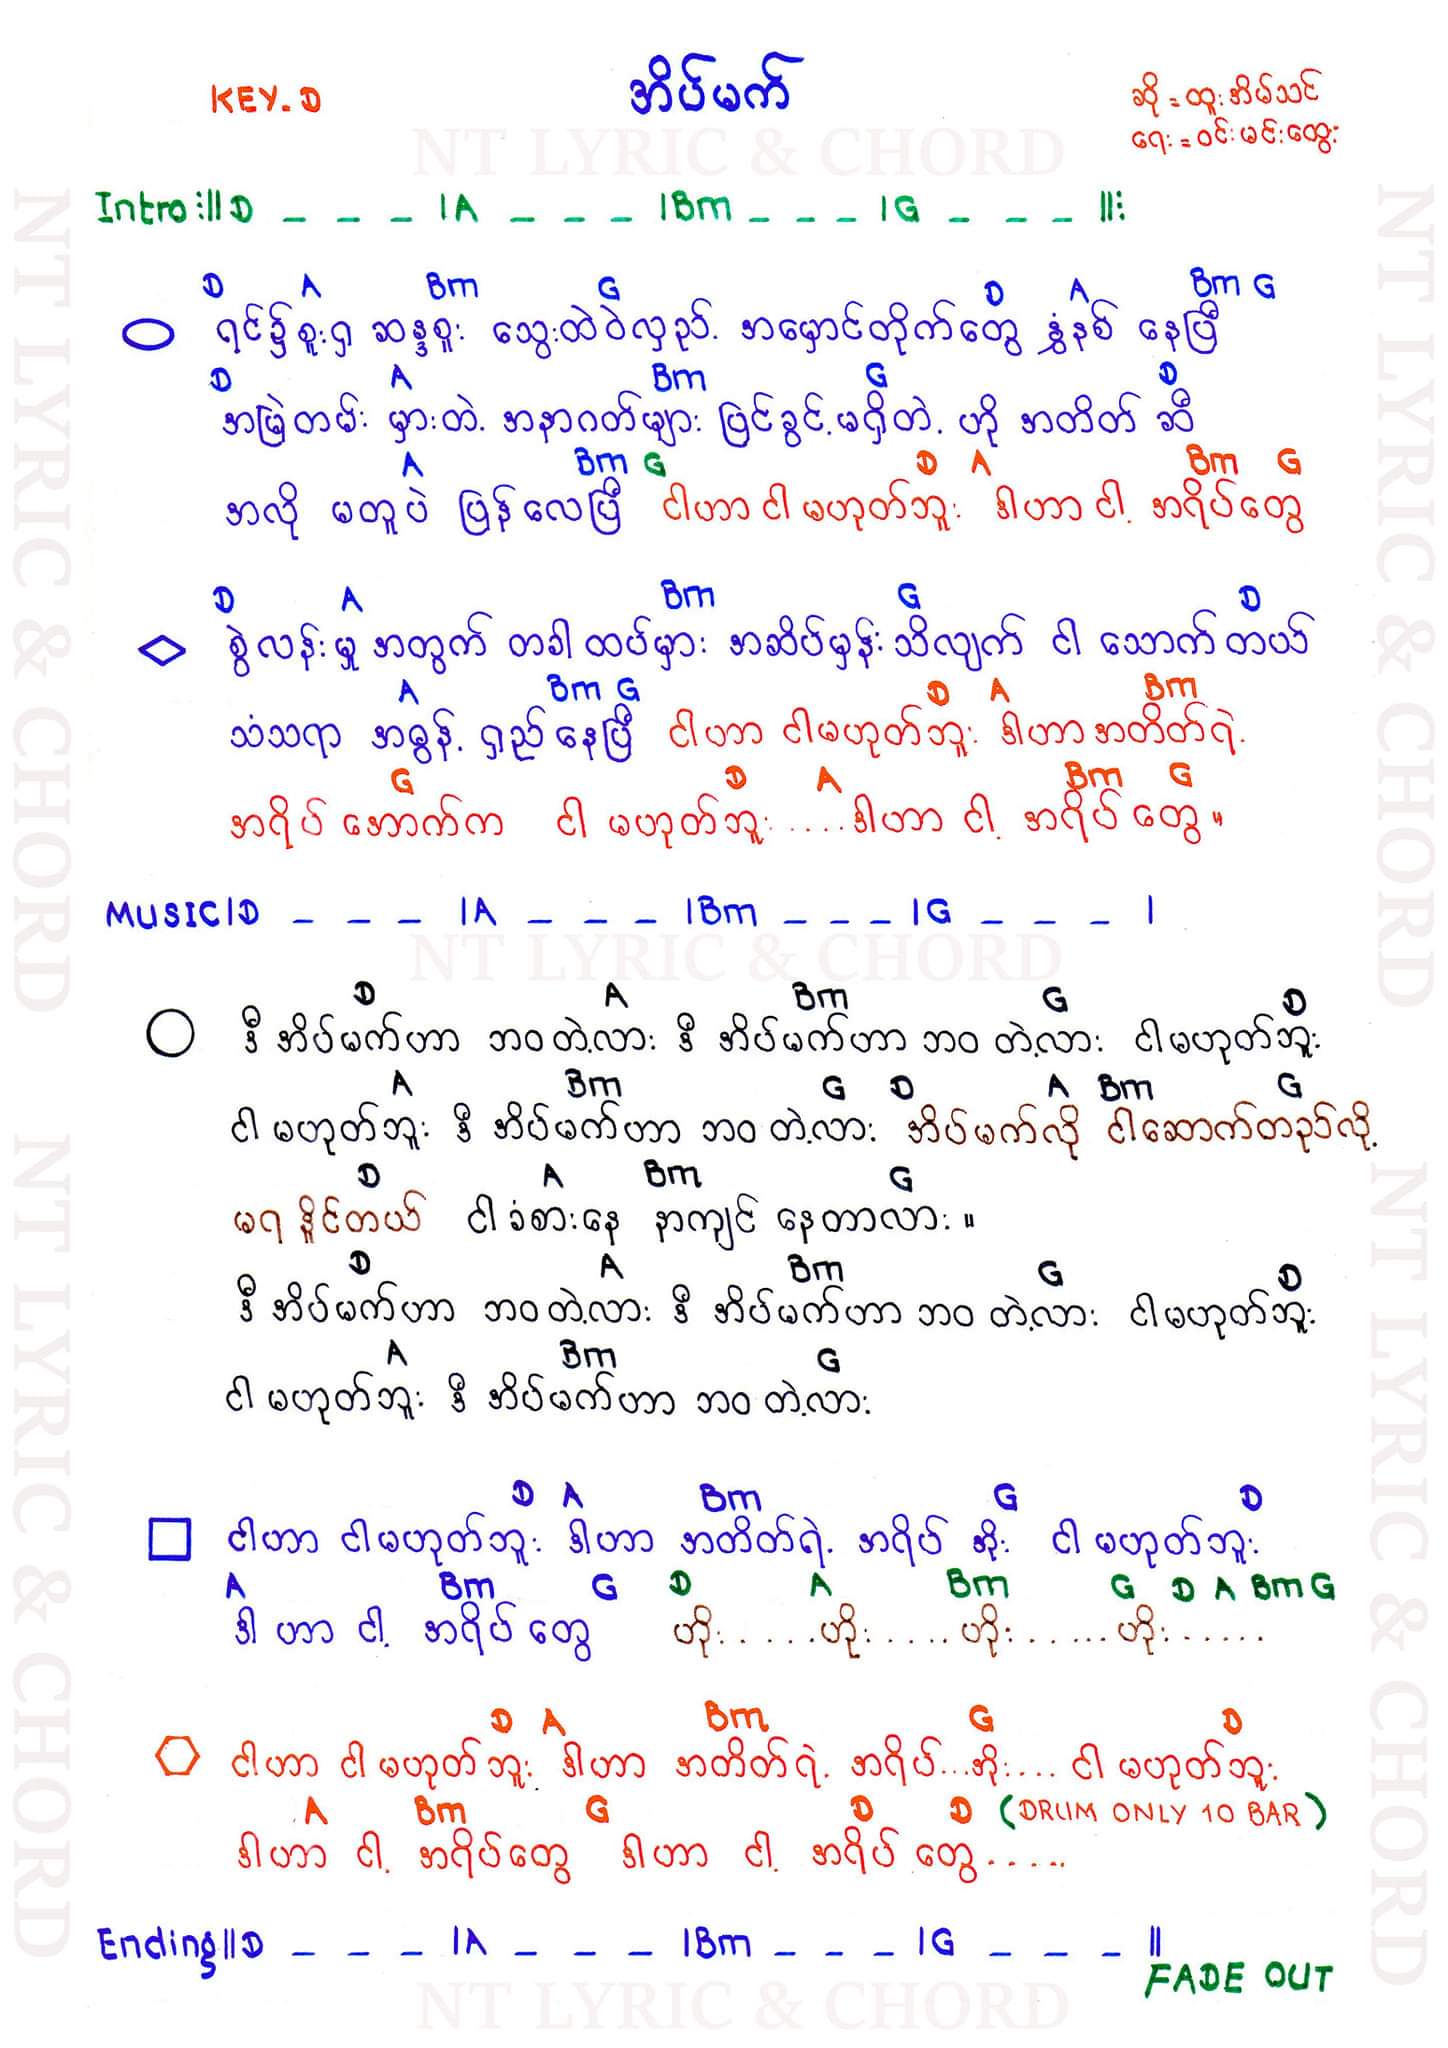 KEY. D
အိပ်မက်
ဆို = ထူးအိမ်သင်
ရေး = ဝင်းမင်းထွေး
NT LYRIC & CHORD
Intro :|| D _ _ _ | A _ _ _ | Bm _ _ _ | G _ _ _ ||:
D A Bm G D A Bm G
ရင်၌စူးရှ ဆန္ဒစူး သွေးထဲဝဲလှည့် အမှောင်တိုက်တွေ နွံနစ် နေပြီ
D A Bm G D
အမြဲတမ်း မှားတဲ့ အနာဂတ်များ ပြင်ခွင့်မရှိတဲ့ ဟို အတိတ် ဆီ
A Bm G D A Bm G
အလို မတူပဲ ပြန်လေပြီ ငါဟာ ငါ မဟုတ်ဘူး ဒါဟာ ငါ့ အရိပ်တွေ
D A Bm G D
စွဲလန်းမှု အတွက် တခါ ထပ်မှား အဆိပ်မှန်းသိလျက် ငါ သောက် တယ်
A Bm G D A Bm
သံသရာ အဓွန့် ရှည်နေပြီ ငါဟာ ငါမဟုတ်ဘူး ဒါဟာ အတိတ်ရဲ့
G D A Bm G
အရိပ် အောက်က ငါ မဟုတ်ဘူး .... ဒါဟာ ငါ့ အရိပ် တွေ။
MUSIC | D _ _ _ | A _ _ _ | Bm _ _ _ | G _ _ _ |
NT LYRIC & CHORD
D A Bm G D
ဒီ အိပ်မက်ဟာ ဘဝတဲ့လား ဒီ အိပ်မက်ဟာ ဘဝ တဲ့လား ငါမဟုတ်ဘူး
A Bm G D A Bm G
ငါ မဟုတ်ဘူး ဒီ အိပ်မက်ဟာ ဘဝ တဲ့လား အိပ်မက်လို ငါဆောက်တည်လို့
D A Bm G
မရ နိုင်တယ် ငါ ခံစားနေ နာကျင် နေတာလား။
D A Bm G D
ဒီ အိပ်မက်ဟာ ဘဝတဲ့လား ဒီ အိပ်မက်ဟာ ဘဝ တဲ့လား ငါမဟုတ်ဘူး
A Bm G
ငါ မဟုတ်ဘူး ဒီ အိပ်မက်ဟာ ဘဝ တဲ့လား
D A Bm G D
ငါဟာ ငါမဟုတ်ဘူး ဒါဟာ အတိတ်ရဲ့ အရိပ် အိုး ငါ မဟုတ်ဘူး
A Bm G D A Bm G D A Bm G
ဒါ ဟာ ငါ့ အရိပ် တွေ ဟိုး ...... ဟိုး ..... ဟိုး ...... ဟိုး ......
D A Bm G D
ငါဟာ ငါ မဟုတ်ဘူး ဒါဟာ အတိတ်ရဲ့ အရိပ်...အိုး.... ငါ မဟုတ်ဘူး
A Bm G D D (DRUM ONLY 10 BAR)
ဒါဟာ ငါ့ အရိပ်တွေ ဒါဟာ ငါ့ အရိပ် တွေ .....
Ending || D _ _ _ | A _ _ _ | Bm _ _ _ | G _ _ _ ||
FADE OUT
NT LYRIC & CHORD
NT LYRIC & CHORD
NT LYRIC & CHORD
NT LYRIC & CHORD
NT LYRIC & CHORD